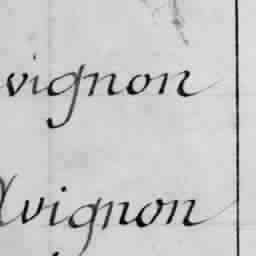 vignon
Avignon